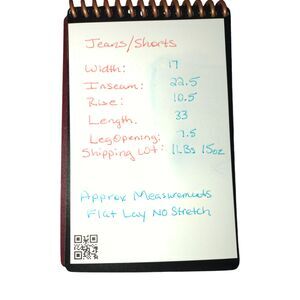 Jeans/Shorts
Width: 17
Inseam: 22.5
Rise: 10.5
Length. 33
Leg Opening: 7.5
Shipping Lot: 1 LBs 15oz
Approx Measurements
Flat Lay No Stretch